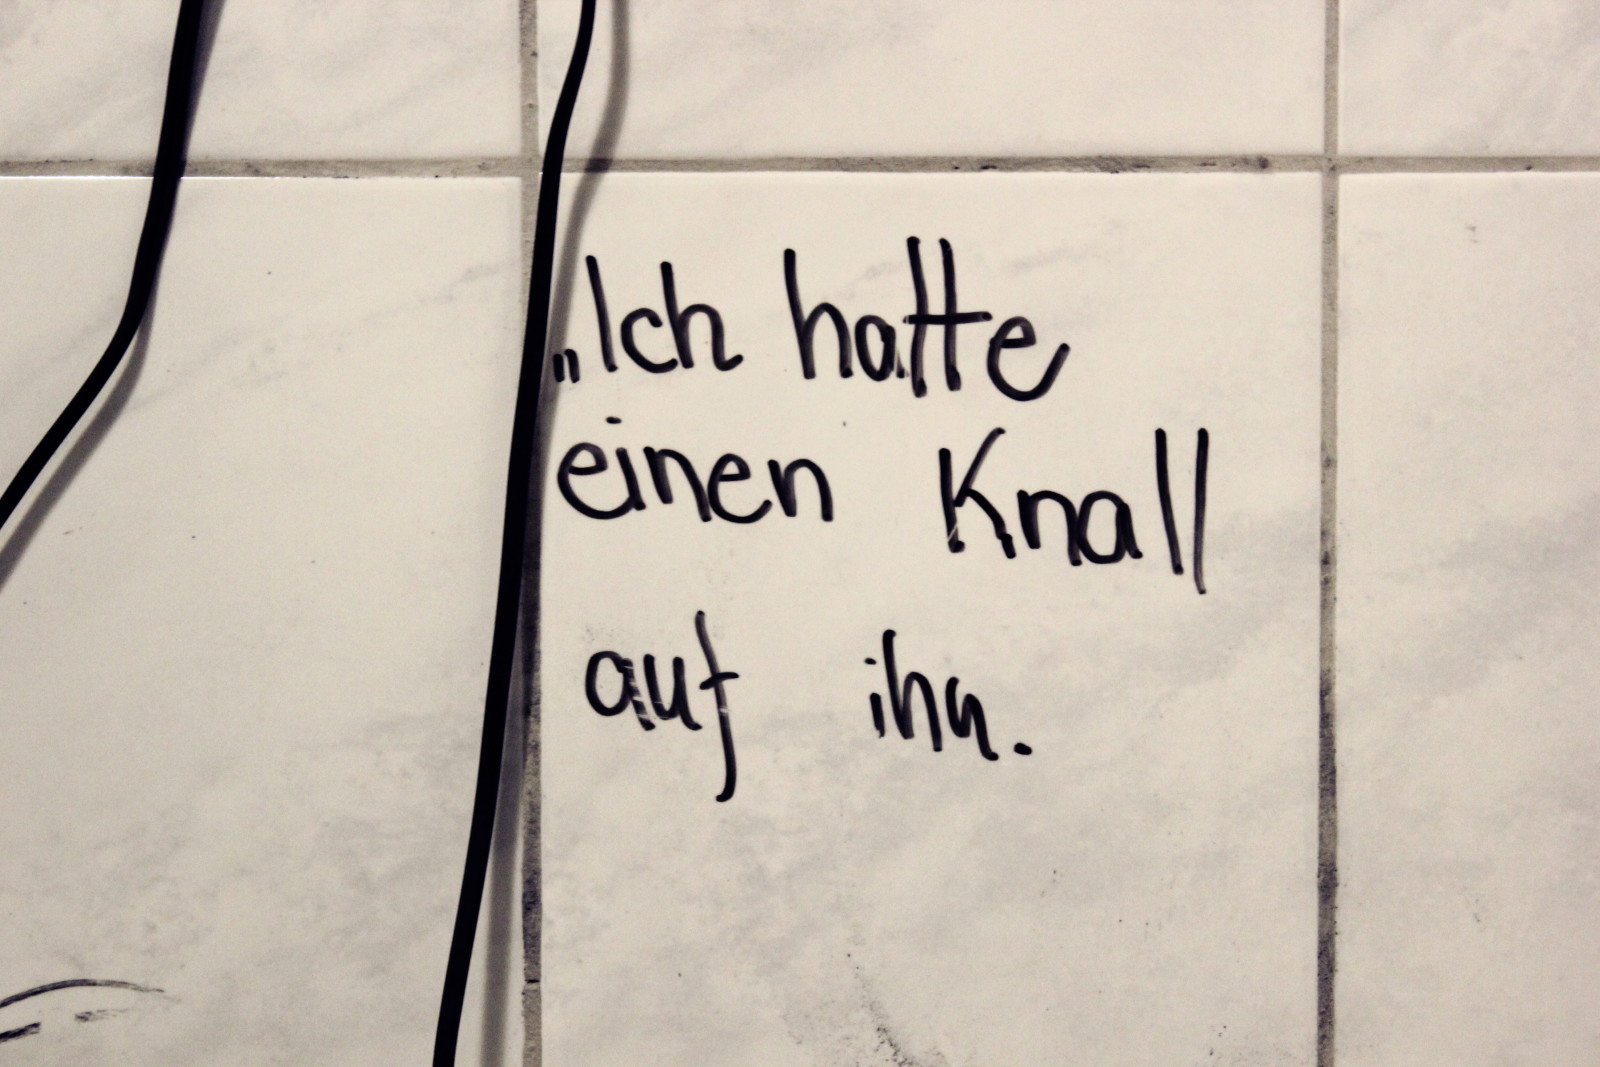 „Ich hatte
einen Knall
auf ihn.